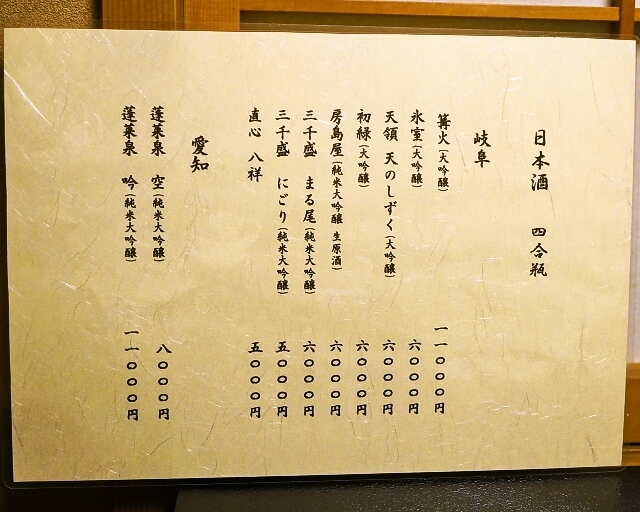 日本酒 四合瓶
岐阜
篝火(大吟醸) 一一〇〇〇円
氷室(大吟醸) 六〇〇〇円
天領 天のしずく(大吟醸) 六〇〇〇円
初緑(大吟醸) 六〇〇〇円
房島屋(純米大吟醸 生原酒) 六〇〇〇円
三千盛 まる尾(純米大吟醸) 六〇〇〇円
三千盛 にごり(純米大吟醸) 五〇〇〇円
直心 八祥 五〇〇〇円
愛知
蓬莱泉 空(純米大吟醸) 八〇〇〇円
蓬莱泉 吟(純米大吟醸) 一一〇〇〇円